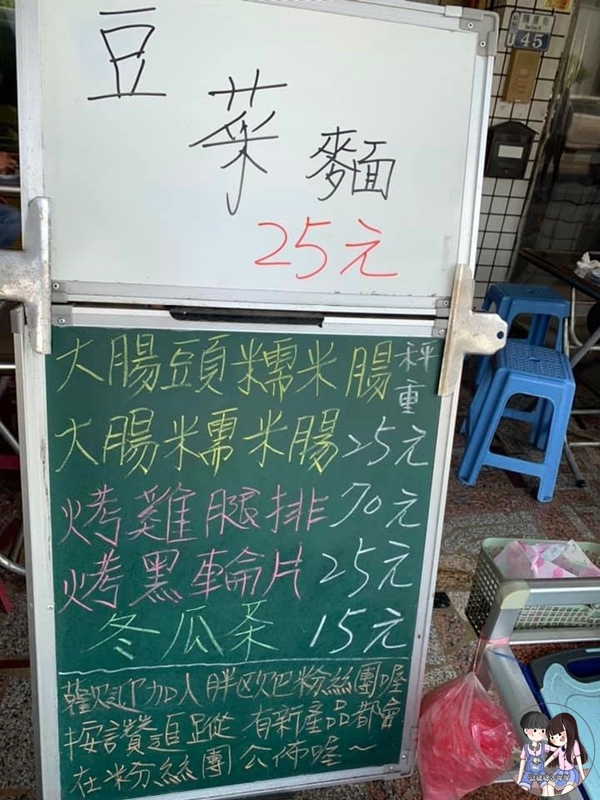 豆菜麵
25元
大腸頭糯米腸 秤重
大腸糯米腸 25元
烤雞腿排 70元
烤黑輪片 25元
冬瓜茶 15元
歡迎加入胖歐巴粉絲團喔
按讚追蹤 有新產品都會
在粉絲團公佈喔~
45